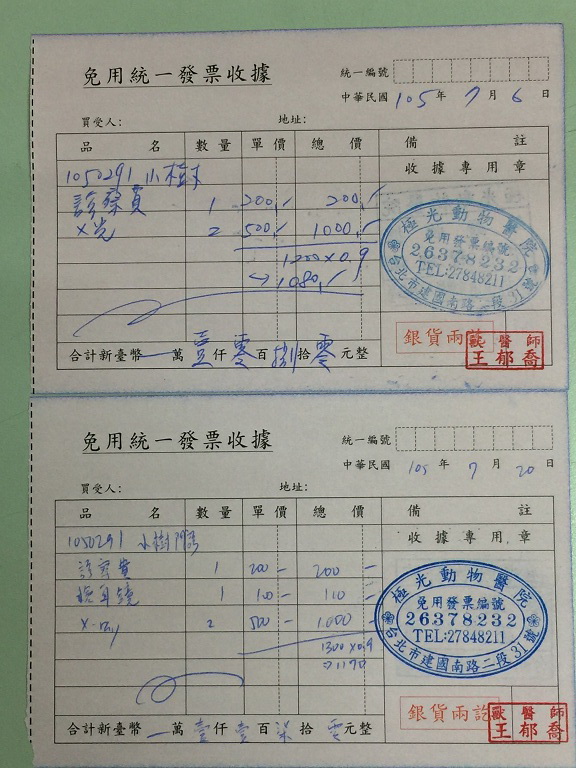 免用統一發票收據
統一編號
中華民國 105 年 7 月 6 日
買受人： 地址：
品名 數量 單價 總價 備註
收據專用章
1050291 小樹
診療費 1 200.- 200.-
X光 2 500.- 1000.-
1200x0.9
→1080.-
極光動物醫院
免用發票編號
26378232
TEL:27848211
台北市建國南路二段31號
銀貨兩訖
獸醫師
王郁喬
合計新臺幣 萬 壹 仟 零 百 捌 拾 零 元整
免用統一發票收據
統一編號
中華民國 105 年 7 月 20 日
買受人： 地址：
品名 數量 單價 總價 備註
收據專用章
1050291 小樹
診察費 1 200 - 200 -
1 100 - 110 -
X-ray 2 500 - 1000 -
1300x0.9
→1170
極光動物醫院
免用發票編號
26378232
TEL:27848211
台北市建國南路二段31號
銀貨兩訖
獸醫師
王郁喬
合計新臺幣 萬 壹 仟 壹 百 柒 拾 零 元整